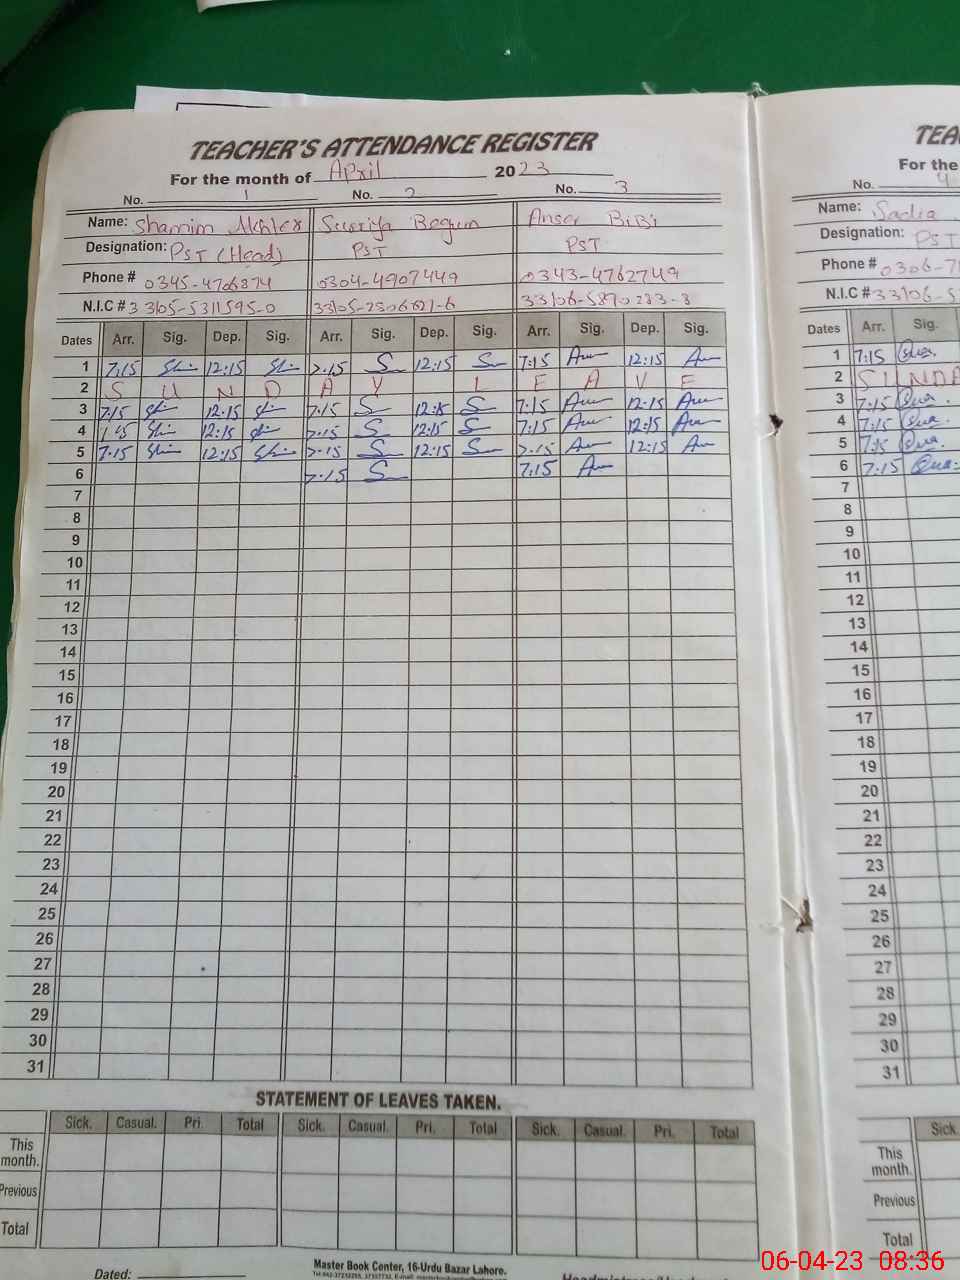 TEACHER'S ATTENDANCE REGISTER
For the month of April 2023
No. 1 No. 2 No. 3
Name: Shamim Akhter Surriya Begum Ansar BiBi
Designation: PST (Head) PST PST
Phone # 0345-4706874 0304-4907449 0343-4762749
N.I.C # 33105-5311595-0
Dates Arr. Sig. Dep. Sig. Arr. Sig. Dep. Sig. Arr. Sig. Dep. Sig.
1 7:15 12:15 7:15 12:15 7:15 12:15
2 S U N D A Y L E A V E
3 7:15 12:15 7:15 12:15 7:15 12:15
4 12:15 7:15 12:15 7:15 12:15
5 7:15 12:15 7:15 12:15 7:15 12:15
6 7:15 7:15
7
8
9
10
11
12
13
14
15
16
17
18
19
20
21
22
23
24
25
26
27
28
29
30
31
STATEMENT OF LEAVES TAKEN.
Sick. Casual. Pri. Total Sick. Casual. Pri. Total Sick. Casual. Pri. Total
This month.
Previous
Total
Dated:
Master Book Center, 16-Urdu Bazar Lahore.
TEA
For the
No. 4
Name: Sadia
Designation: PST
Phone # 0306-7
N.I.C # 33106-5
Dates Arr. Sig.
1 7:15
2 SUNDA
3 7:15
4 7:15
5 7:15
6 7:15
7
8
9
10
11
12
13
14
15
16
17
18
19
20
21
22
23
24
25
26
27
28
29
30
31
Sick.
This month.
Previous
Total
06-04-23 08:36